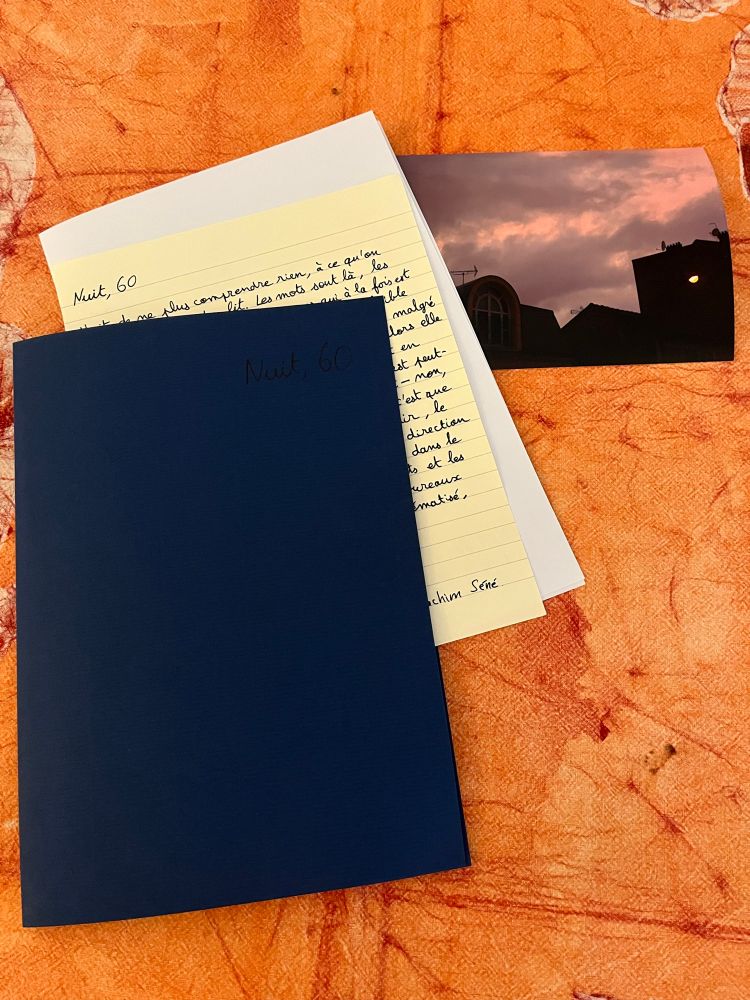 Nuit, 60
de ne plus comprendre rien, à ce qu'on
lit. Les mots sont là, les
qui à la fois est
malgré
alors elle
en
est peut-
- non,
c'est que
le
direction
dans le
et les
bureaux
ématisé,
achim Séné
Nuit, 60